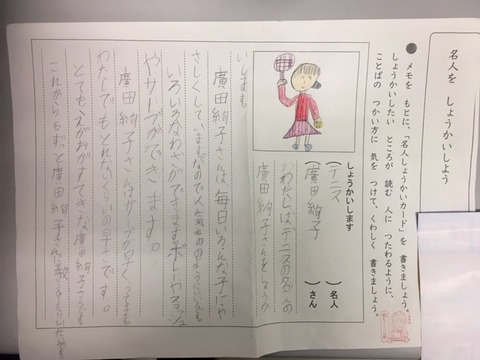 名人を しょうかいしよう
● メモを もとに、「名人しょうかいカード」を 書きましょう。
しょうかいしたい ところが 読む 人に つたわるように、
ことばの つかい方に 気を つけて、くわしく 書きましょう。
しょうかいします
(テニス )名人
(廣田 絢子 )さん
わたしは、テニスの名人の
廣田 絢子さんをしょうか
いします。
廣田絢子さんは毎日いろんな子にや
さしくしています。なので人気もの
いろいろなわざができます。ボレーやスマッシュ
やサーブができます。
廣田 絢子さんはサーブが早くて
わたしでもとれないくらいの早さです。
とてもえがおがすてきな廣田絢子
これからもずっと廣田 絢子さんに教えてもらいたい